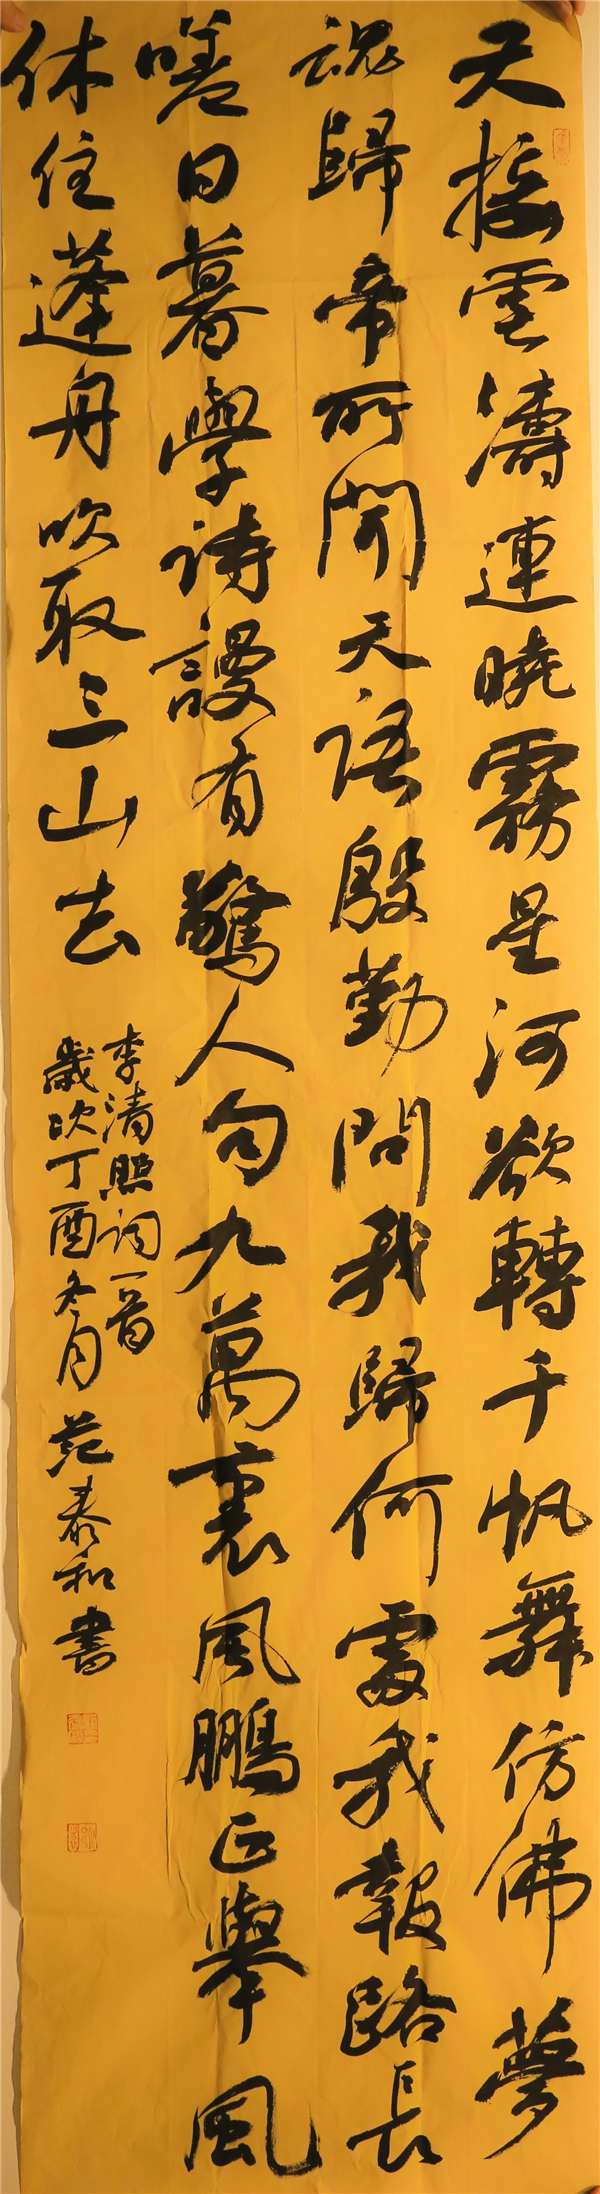 天接雲濤連曉霧星河欲轉千帆舞仿佛夢
魂歸帝所聞天語殷勤問我歸何處我報路長
嗟日暮學詩謾有驚人句九萬裏風鵬正舉風
休住蓬舟吹取三山去
李清照詞一首
歲次丁酉冬月范泰和書